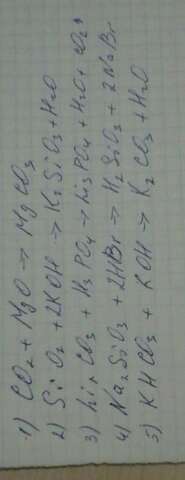 1) CO2 + MgO → MgCO3
2) SiO2 + 2KOH → K2SiO3 + H2O
3) Li2CO3 + H3PO4 → Li3PO4 + H2O + CO2
4) Na2SiO3 + 2HBr → H2SiO3 + 2NaBr
5) KHCO3 + KOH → K2CO3 + H2O